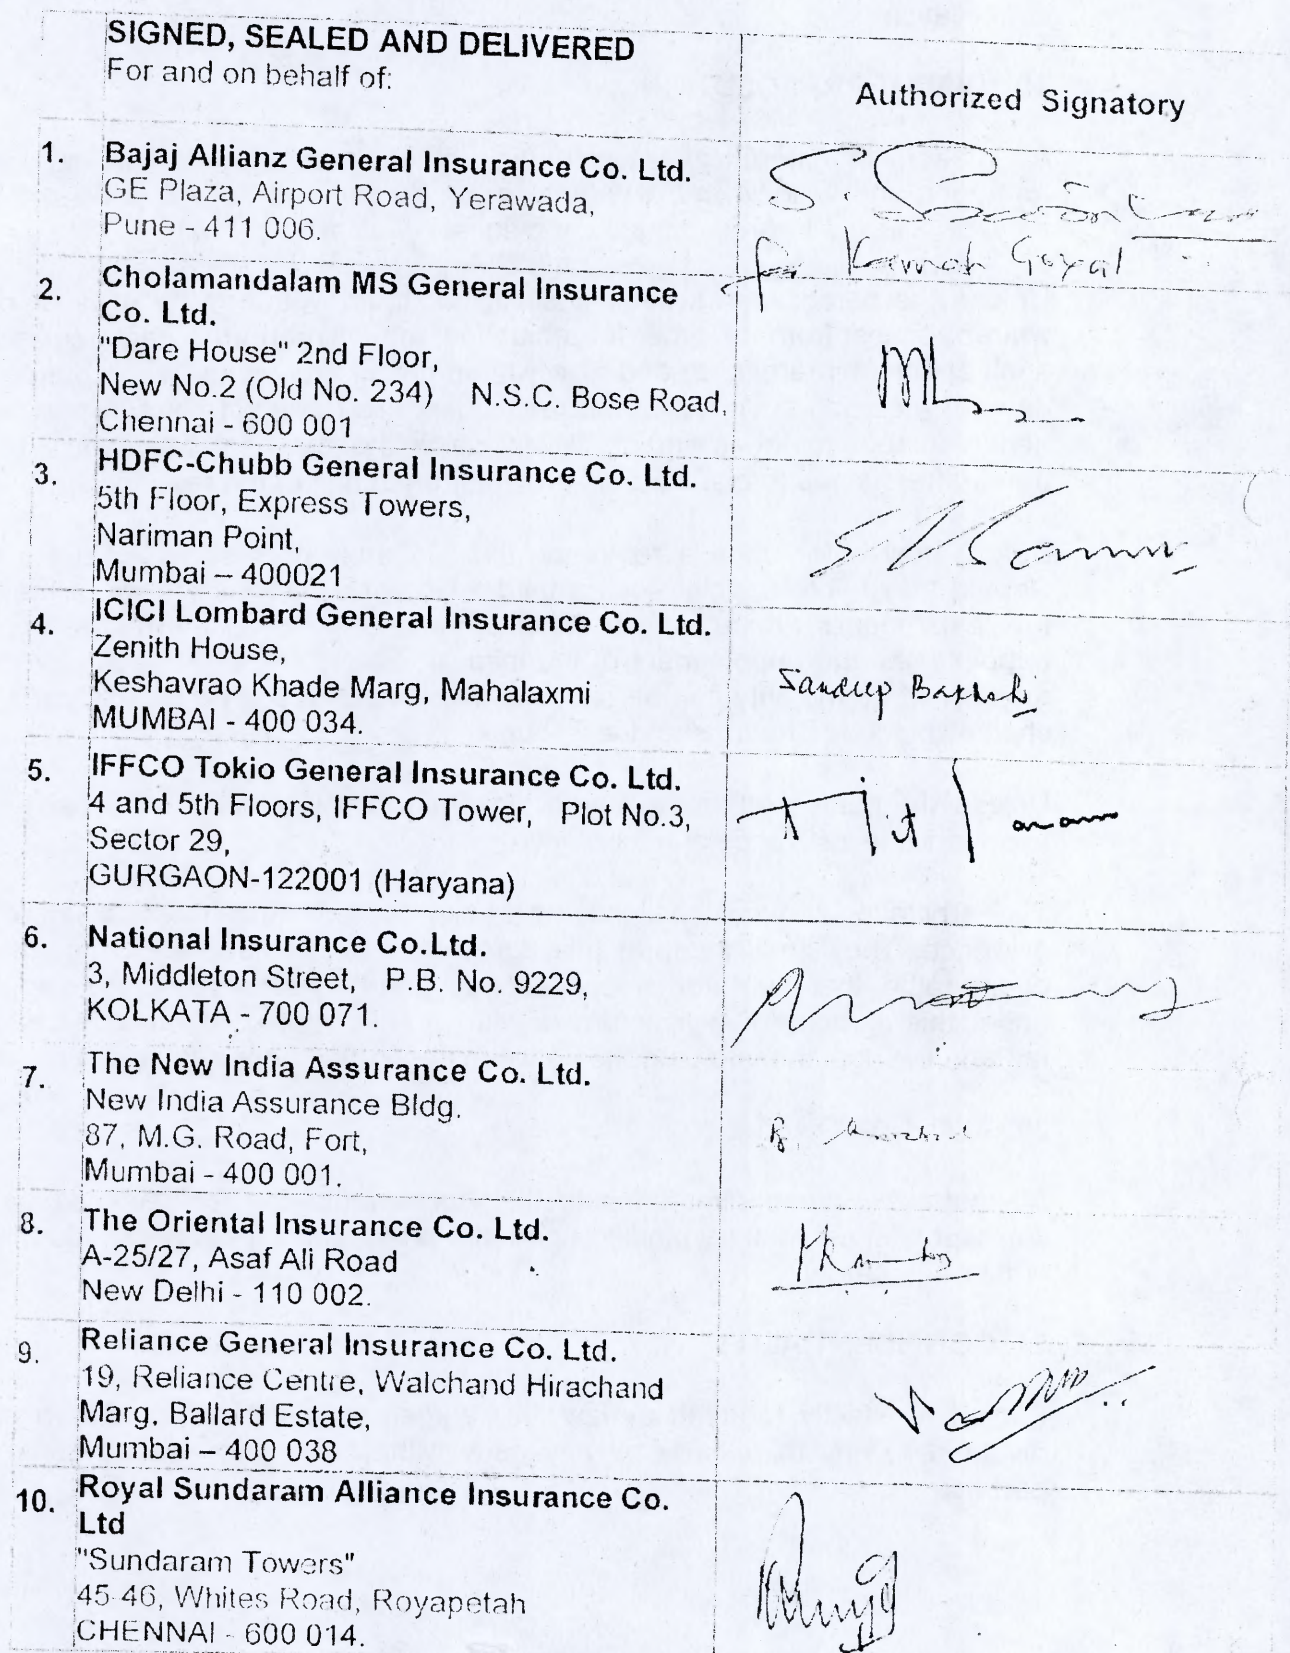 SIGNED, SEALED AND DELIVERED
For and on behalf of:
Authorized Signatory
1. Bajaj Allianz General Insurance Co. Ltd.
GE Plaza, Airport Road, Yerawada,
Pune - 411 006.
for Kamesh Goyal
2. Cholamandalam MS General Insurance
Co. Ltd.
"Dare House" 2nd Floor,
New No.2 (Old No. 234) N.S.C. Bose Road,
Chennai - 600 001
3. HDFC-Chubb General Insurance Co. Ltd.
5th Floor, Express Towers,
Nariman Point,
Mumbai – 400021
4. ICICI Lombard General Insurance Co. Ltd.
Zenith House,
Keshavrao Khade Marg, Mahalaxmi
MUMBAI - 400 034.
Sandeep Bakhshi
5. IFFCO Tokio General Insurance Co. Ltd.
4 and 5th Floors, IFFCO Tower, Plot No.3,
Sector 29,
GURGAON-122001 (Haryana)
6. National Insurance Co.Ltd.
3, Middleton Street, P.B. No. 9229,
KOLKATA - 700 071.
7. The New India Assurance Co. Ltd.
New India Assurance Bldg.
87, M.G. Road, Fort,
Mumbai - 400 001.
8. The Oriental Insurance Co. Ltd.
A-25/27, Asaf Ali Road
New Delhi - 110 002.
9. Reliance General Insurance Co. Ltd.
19, Reliance Centre, Walchand Hirachand
Marg, Ballard Estate,
Mumbai – 400 038
10. Royal Sundaram Alliance Insurance Co.
Ltd
"Sundaram Towers"
45-46, Whites Road, Royapetah
CHENNAI - 600 014.